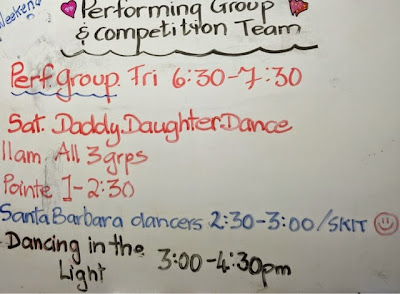 Weekend
Performing Group
& competition Team
Perf. group Fri 6:30-7:30
Sat. Daddy.Daughter.Dance
11am All 3 grps
Pointe 1-2:30
Santa Barbara dancers 2:30-3:00/SKIT
Dancing in the 3:00-4:30pm
Light